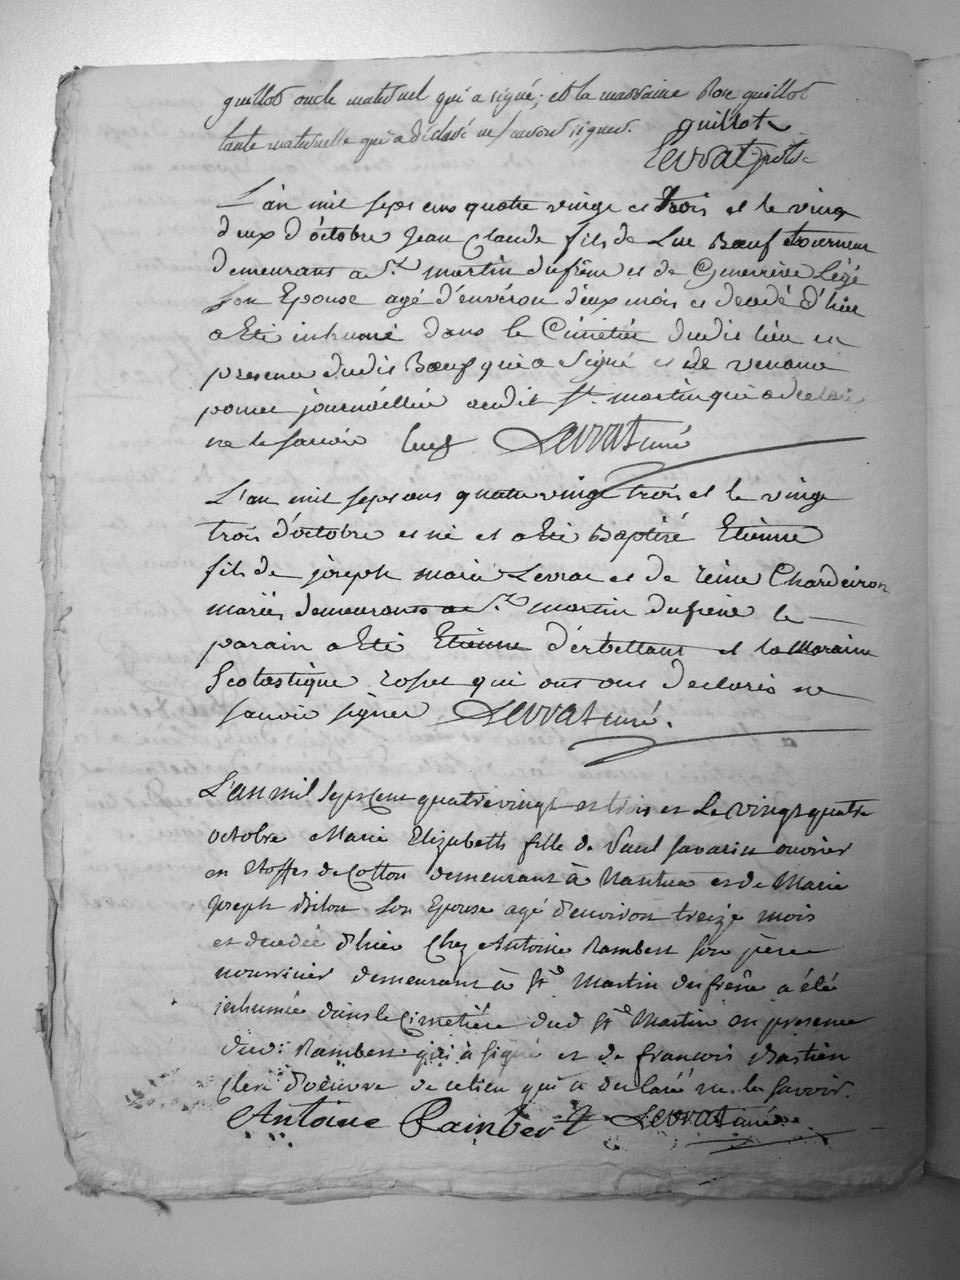 guillot oncle maternel qui a signé; et la marraine Rose guillot
tante maternelle qui a déclaré ne savoir signer. guillot
Levrat ptre
L'an mil sept cens quatre vingt et trois et le vingt
deux d'octobre Jean Claude fils de Luc Bœuf tourneur
demeurant a St martin dufrêne et de Genevieve
Son Epouse agé d'environ deux mois et decedé d'hier
a Eté inhumé dans le Cimetiere dudit lieu en
presence dudit Bœuf qui a Signé et de
journaillier audit St martin qui a declaré
ne le savoir Levrat curé
L'an mil sept cens quatre vingt trois et le vingt
trois d'octobre est né et a Eté Baptisé Etienne
fils de joseph marie Levrat et de reine Chardeiron
mariés demeurants a St martin dufrêne le
parain a Eté Etienne d'erbettant et la Maraine
Scolastique qui ont ont declarés ne
savoir signer Levrat curé.
L'an mil sept cent quatre vingt et trois et le vingt quatre
octobre Marie Elizabeth fille de Paul Savarin ouvrier
en Etoffes de Cotton demeurant à Nantua et de Marie
Joseph Bilon Son Epouse agé d'environ treize mois
et decedée d'hier Chez Antoine Rambert Son père
nourricier demeurant à St Martin du frêne a été
inhumée dans le Cimetière dud St Martin en presence
dudt Rambert qui à signé et de francois Bastien
Clerc d'oeuvre de ce lieu qui a declaré ne le savoir.
Antoine Rambert Levrat curé